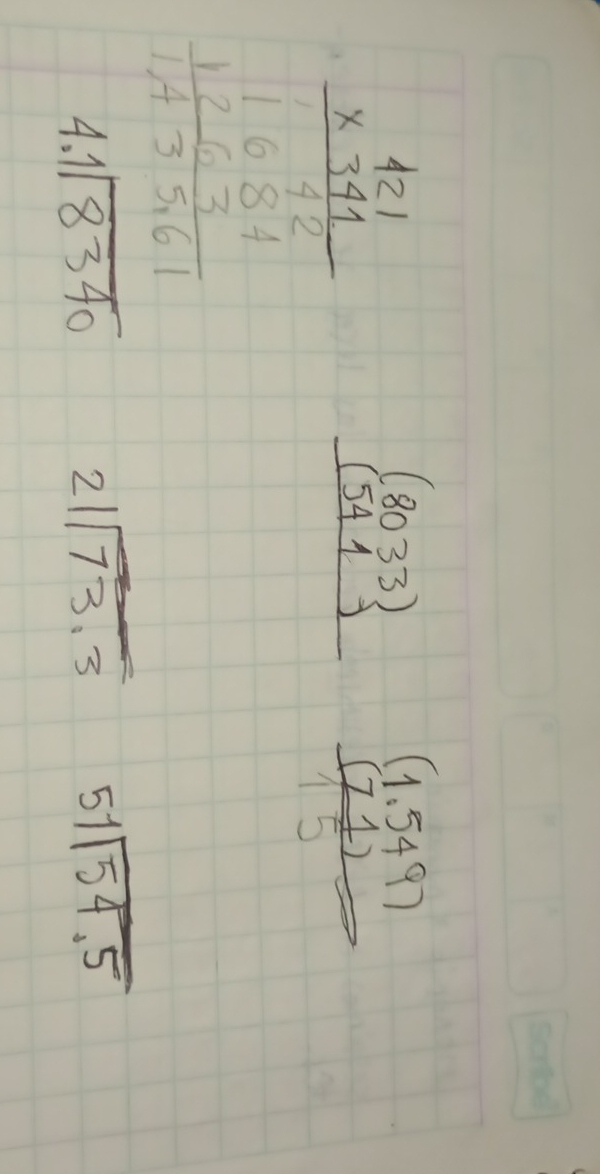 Scribe
421 (8033) (1.549)
x 341 (541) (71)
42 15
1684
1263
1,435.61
4.1 8340 21 73.3 51 54.5